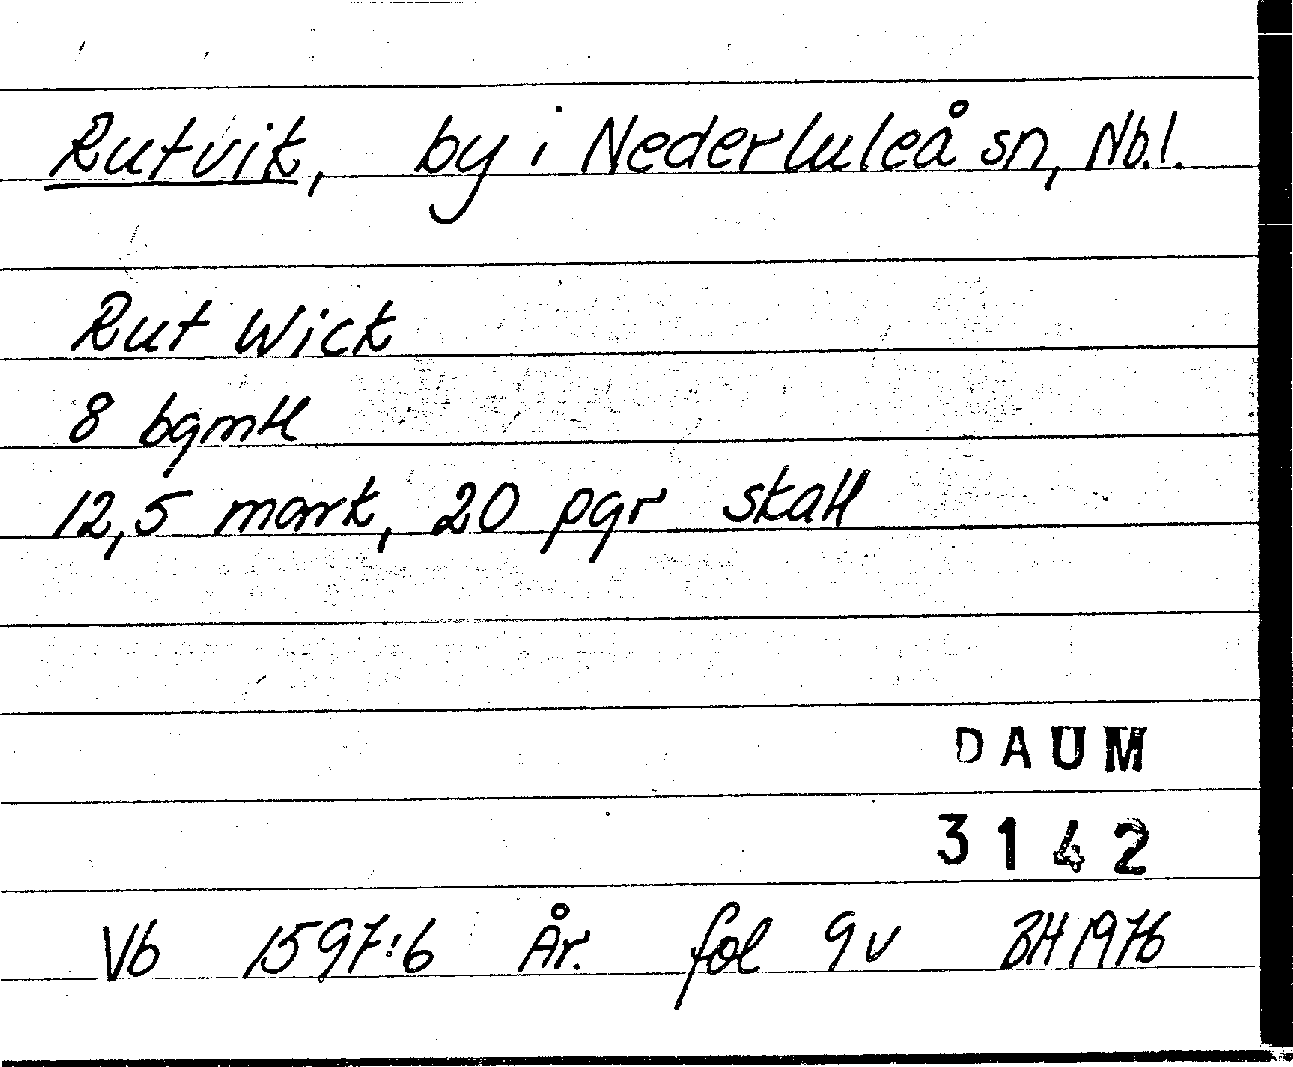 Rutvik, by i Nederluleå sn, Nb.l.
Rut Wick
8 bgmtl
12,5 mark, 20 pgr skatt
DAUM
3142
Vb 1597:6 År. fol 9v BH 1976